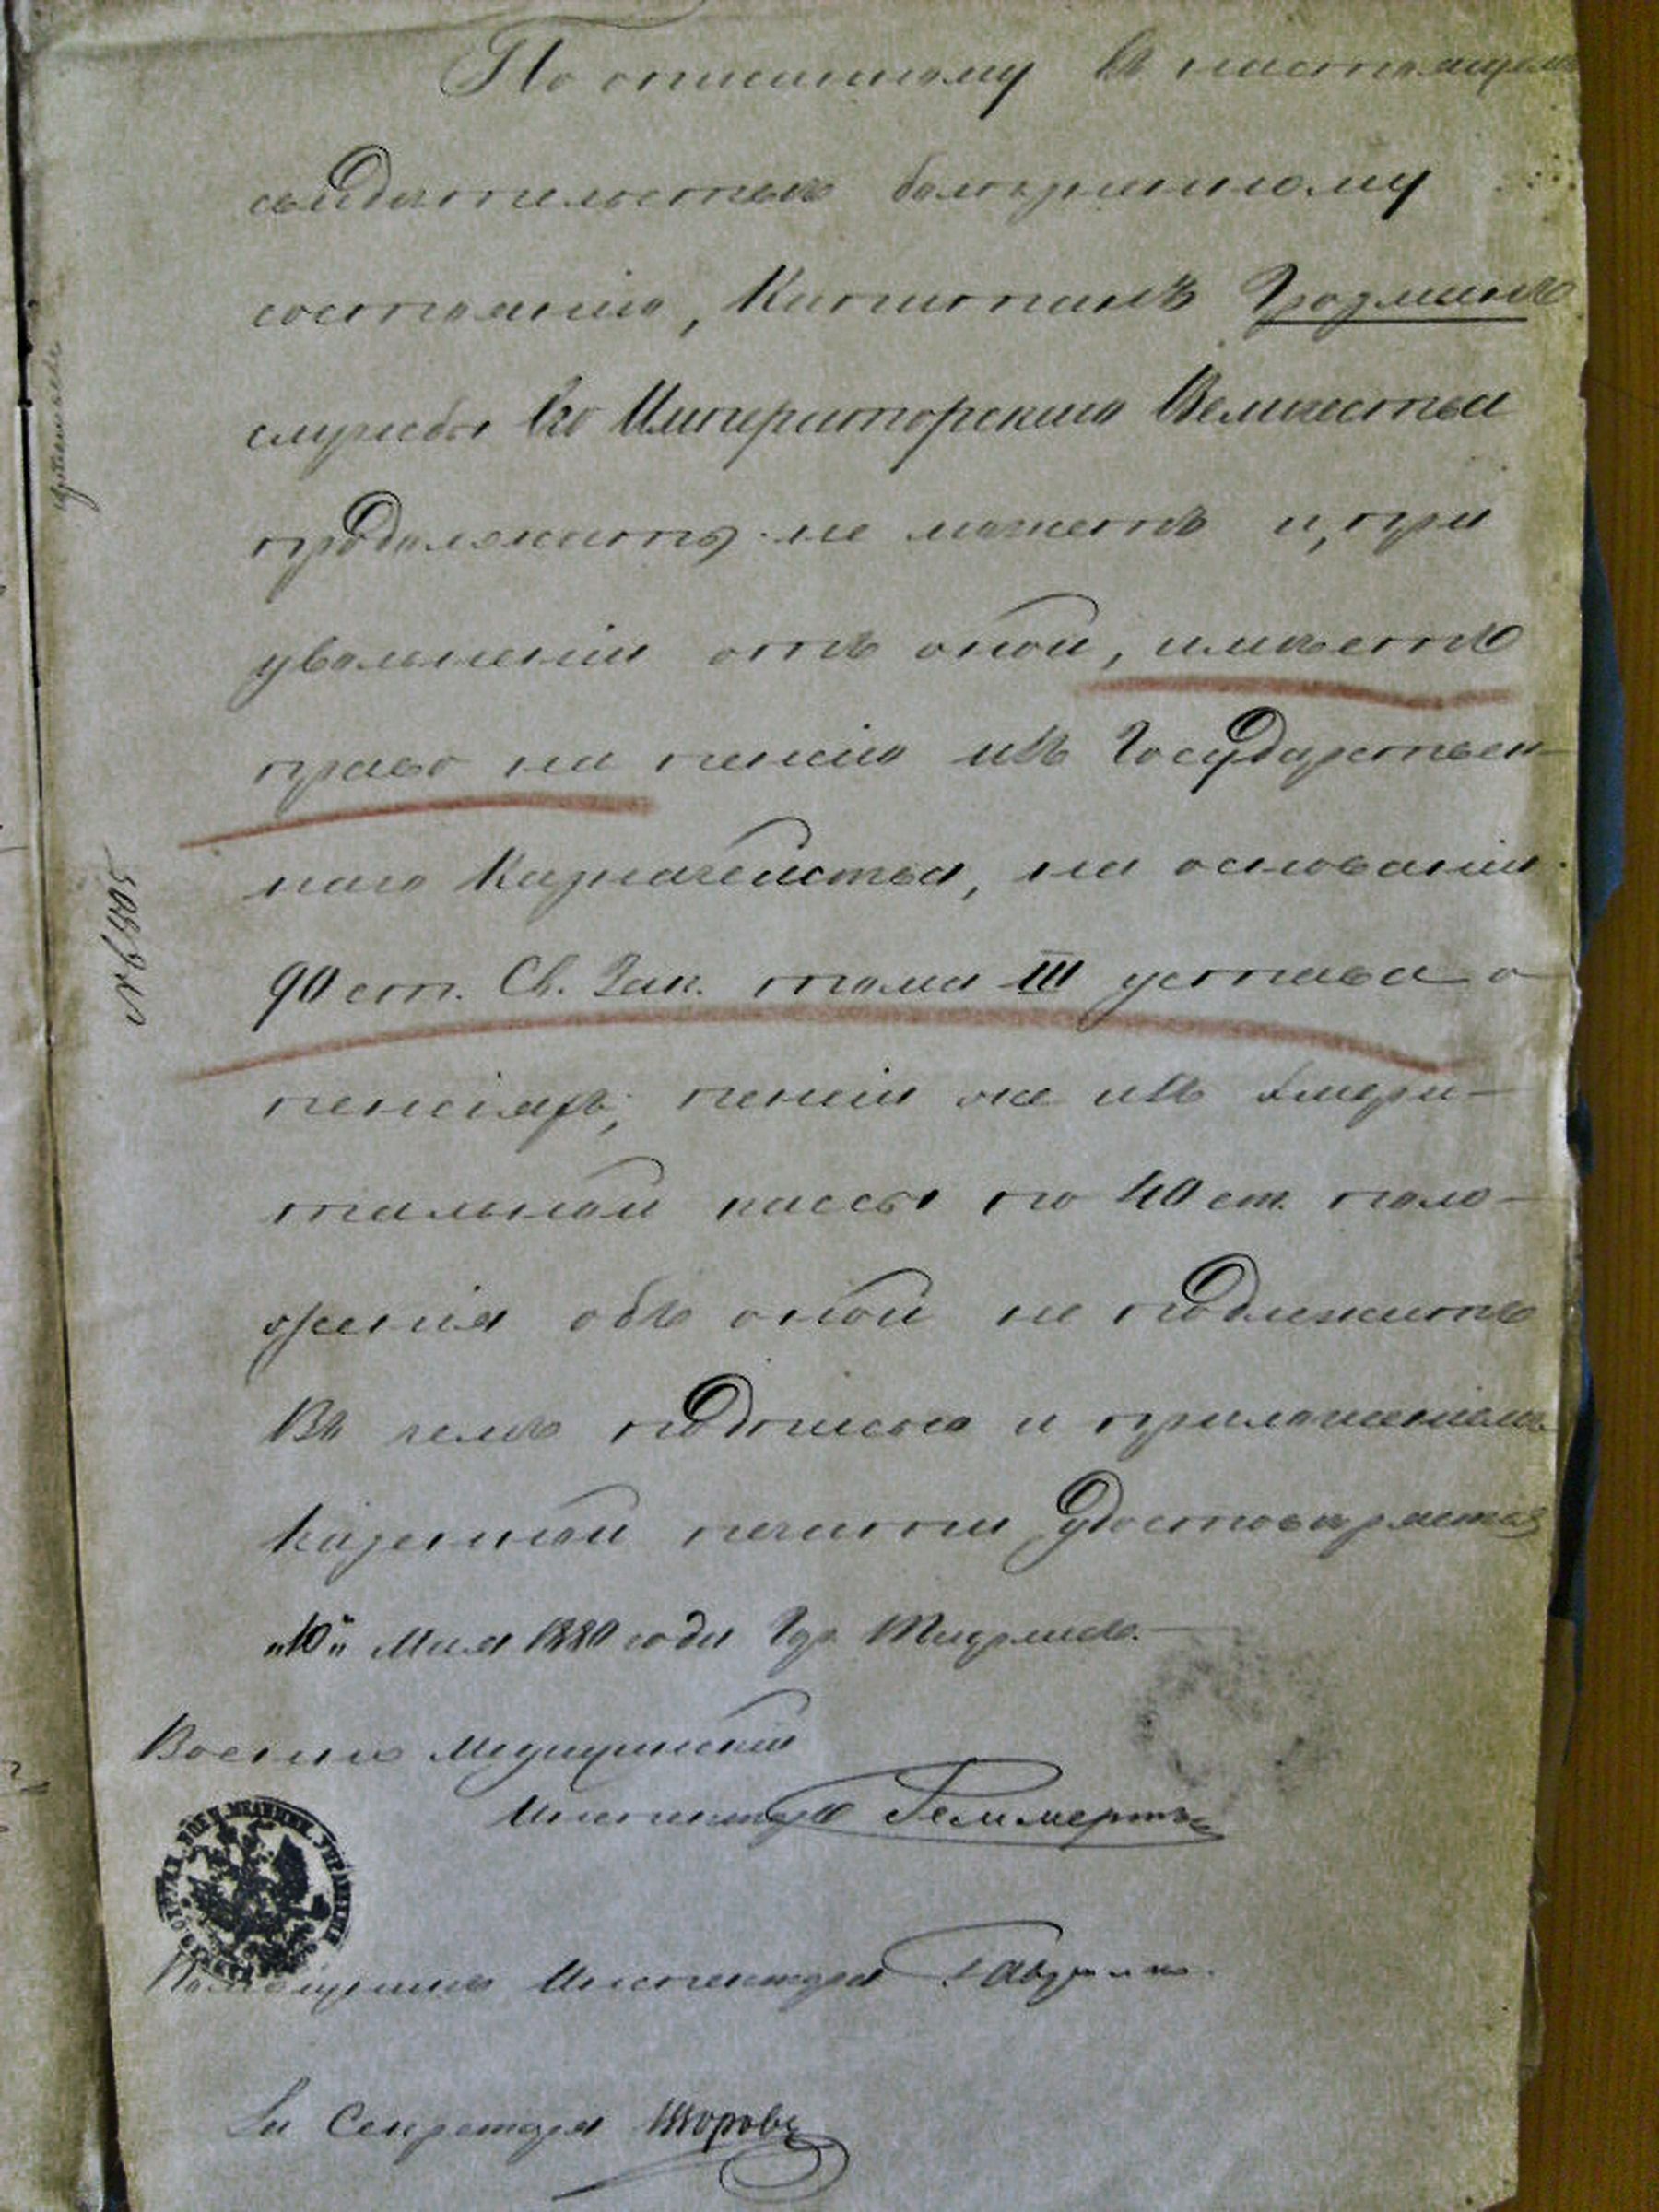 По описанному въ настоящемъ
свидѣтельствѣ болѣзненному
состоянію, Капитанъ Грозмани
службы Его Императорскаго Величества
продолжать не можетъ и, при
увольненіи отъ оной, имѣетъ
право на пенсію изъ Государствен-
наго Казначейства, на основаніи
90 ст. Св. Зак. тома III устава о
пенсіяхъ; пенсіи же изъ Эмери-
тальной кассы по 40 ст. поло-
женія объ оной не подлежитъ
Въ чемъ подписью и приложеніемъ
казенной печати удостовѣряется
„10“ Мая 1880 года Гор. Тифлисъ.
Военно Медицинскій
Инспекторъ Реммертъ
Помощникъ Инспектора
За Секретаря Шоровъ
№ 9505